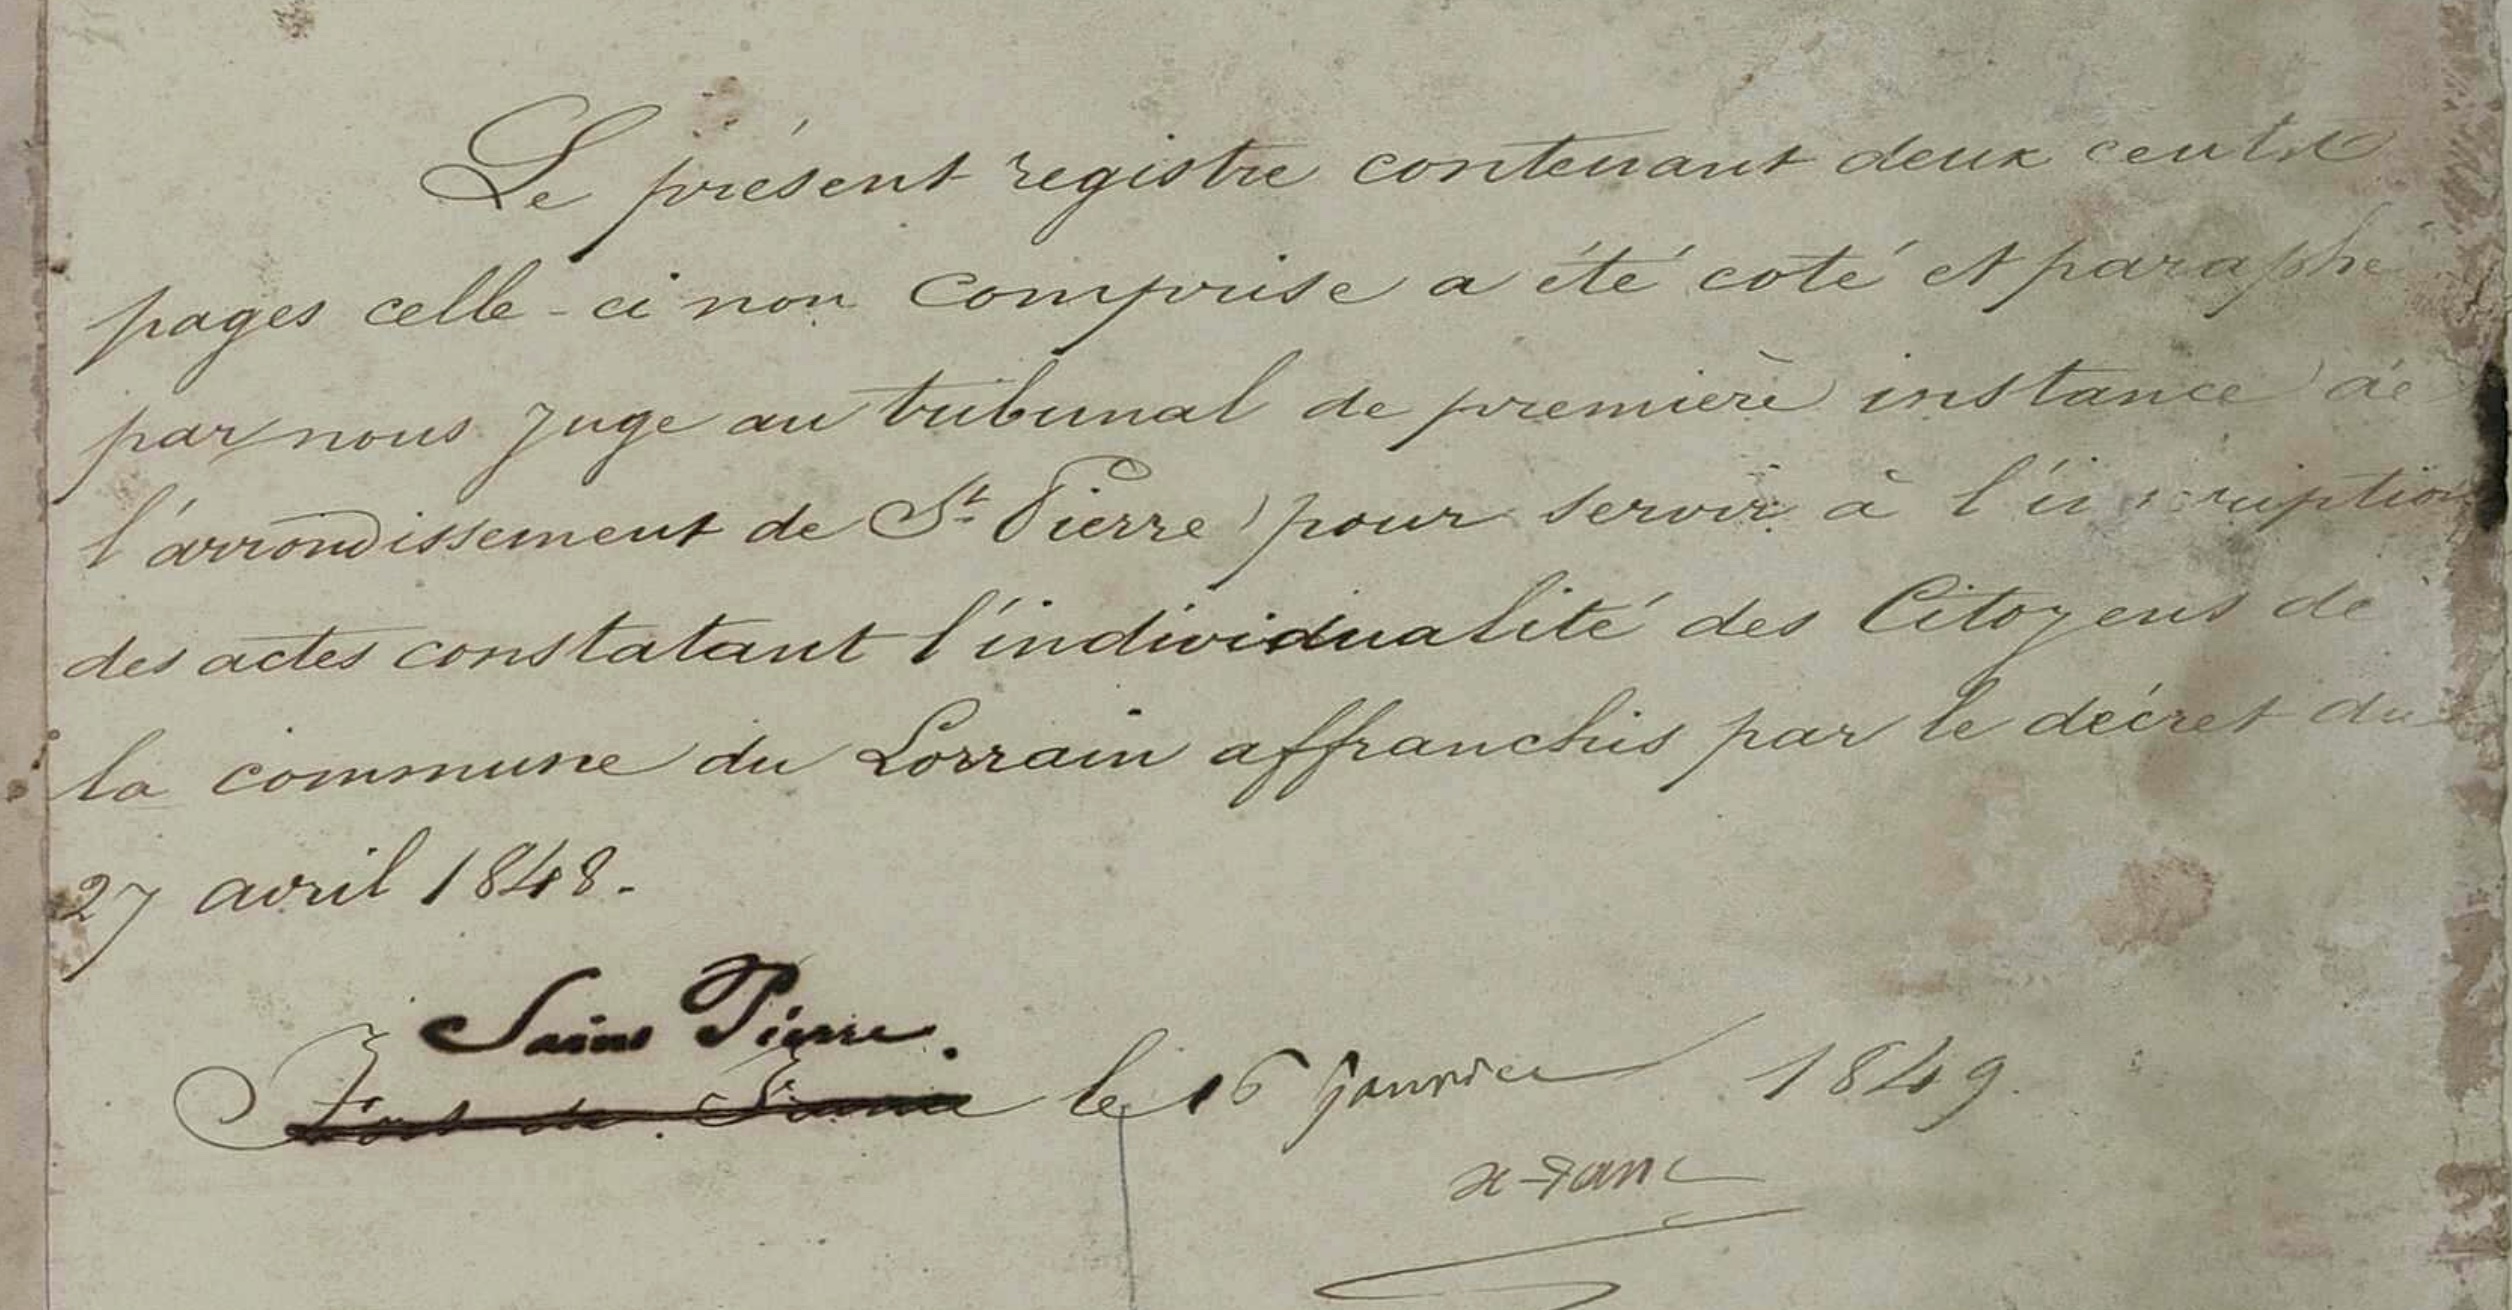 Le présent registre contenant deux cents
pages celle-ci non comprise a été coté et paraphé
par nous Juge au tribunal de première instance de
l'arrondissement de St Pierre pour servir à l'inscription
des actes constatant l'individualité des Citoyens de
la commune du Lorrain affranchis par le décret du
27 avril 1848.
Saint Pierre.
Fort de France le 16 Janvier 1849.